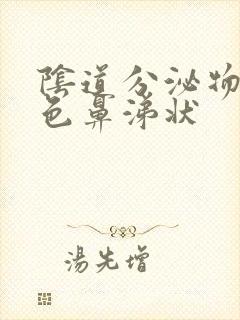 陰道分泌物
色鼻涕狀
湯先增